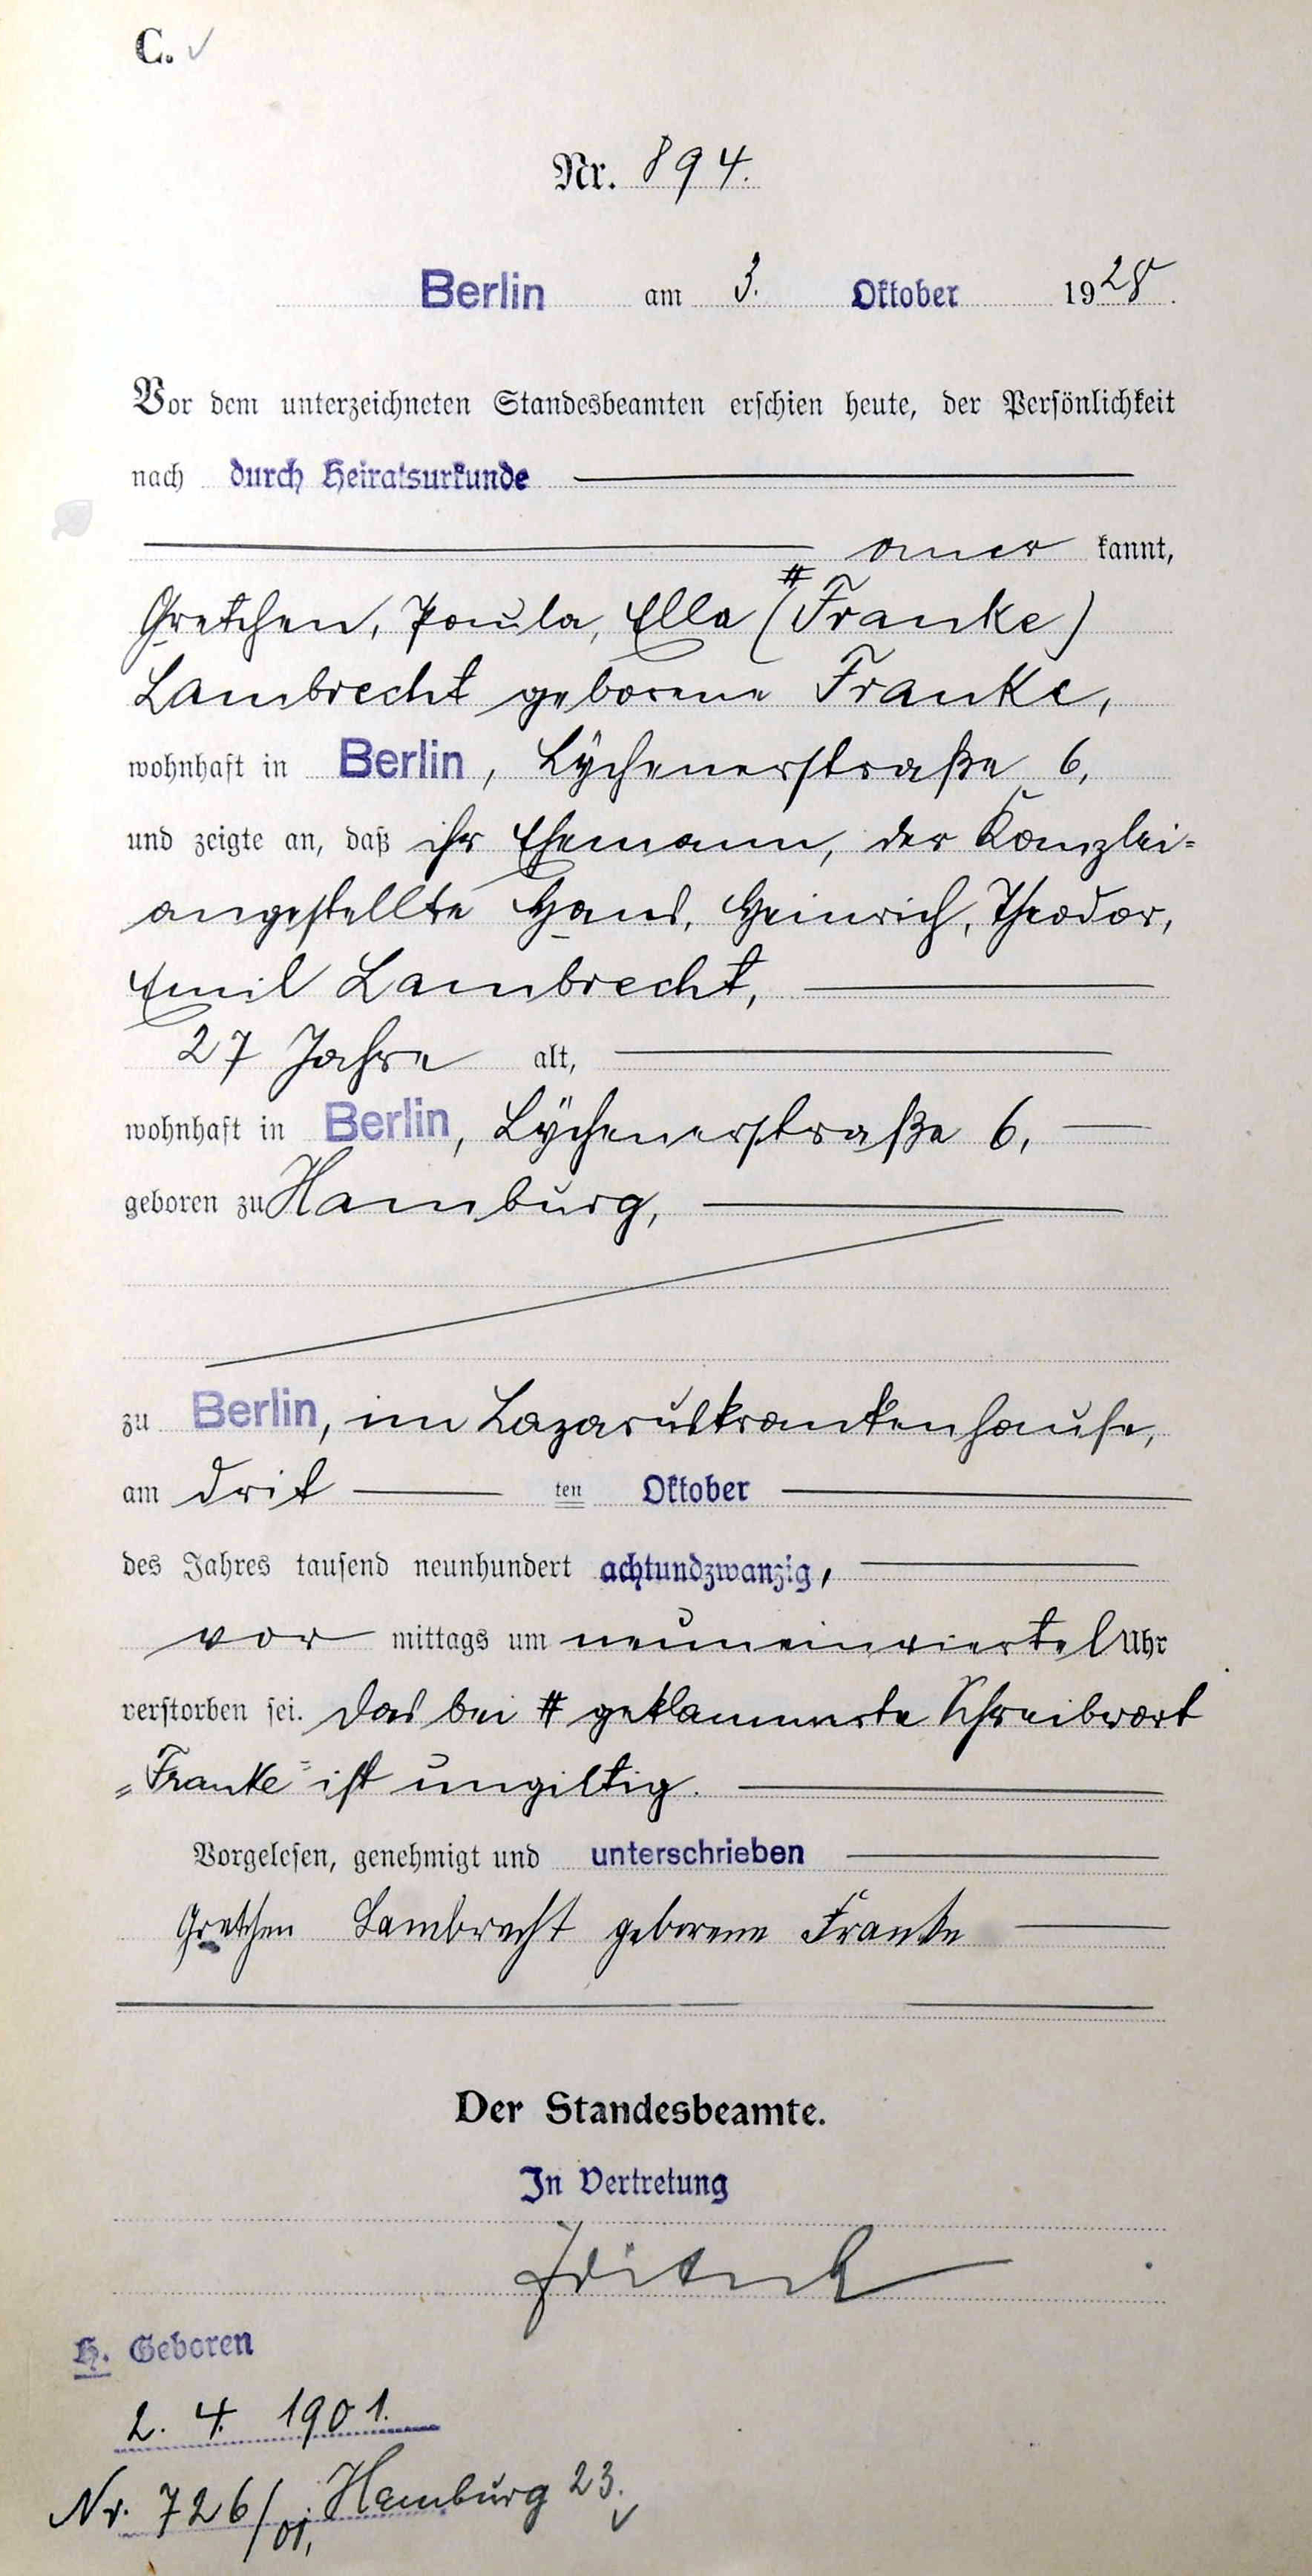 C.
Nr. 894.
Berlin am 3. Oktober 1928.
Vor dem unterzeichneten Standesbeamten erschien heute, der Persönlichkeit
nach durch Heiratsurkunde
aner kannt,
#
Gretchen, Paula, Ella (Franke)
Lambrecht geborene Franke,
wohnhaft in Berlin, Lÿchenerstraße 6,
und zeigte an, daß ihr Ehemann, der Kanzlei=
angestellte Hans, Heinrich, Theodor,
Emil Lambrecht,
27 Jahre alt,
wohnhaft in Berlin, Lÿchenerstraße 6,
geboren zu Hamburg,
zu Berlin, im Lazaruskrankenhause,
am drit ten Oktober
des Jahres tausend neunhundert achtundzwanzig,
vor mittags um neuneinviertel Uhr
verstorben sei. Das bei # geklammerte Schreibwort
„Franke" ist ungiltig.
Vorgelesen, genehmigt und unterschrieben
Gretchen Lambrecht geborene Franke
Der Standesbeamte.
In Vertretung
H. Geboren
2. 4. 1901.
Nr. 726/01, Hamburg 23.